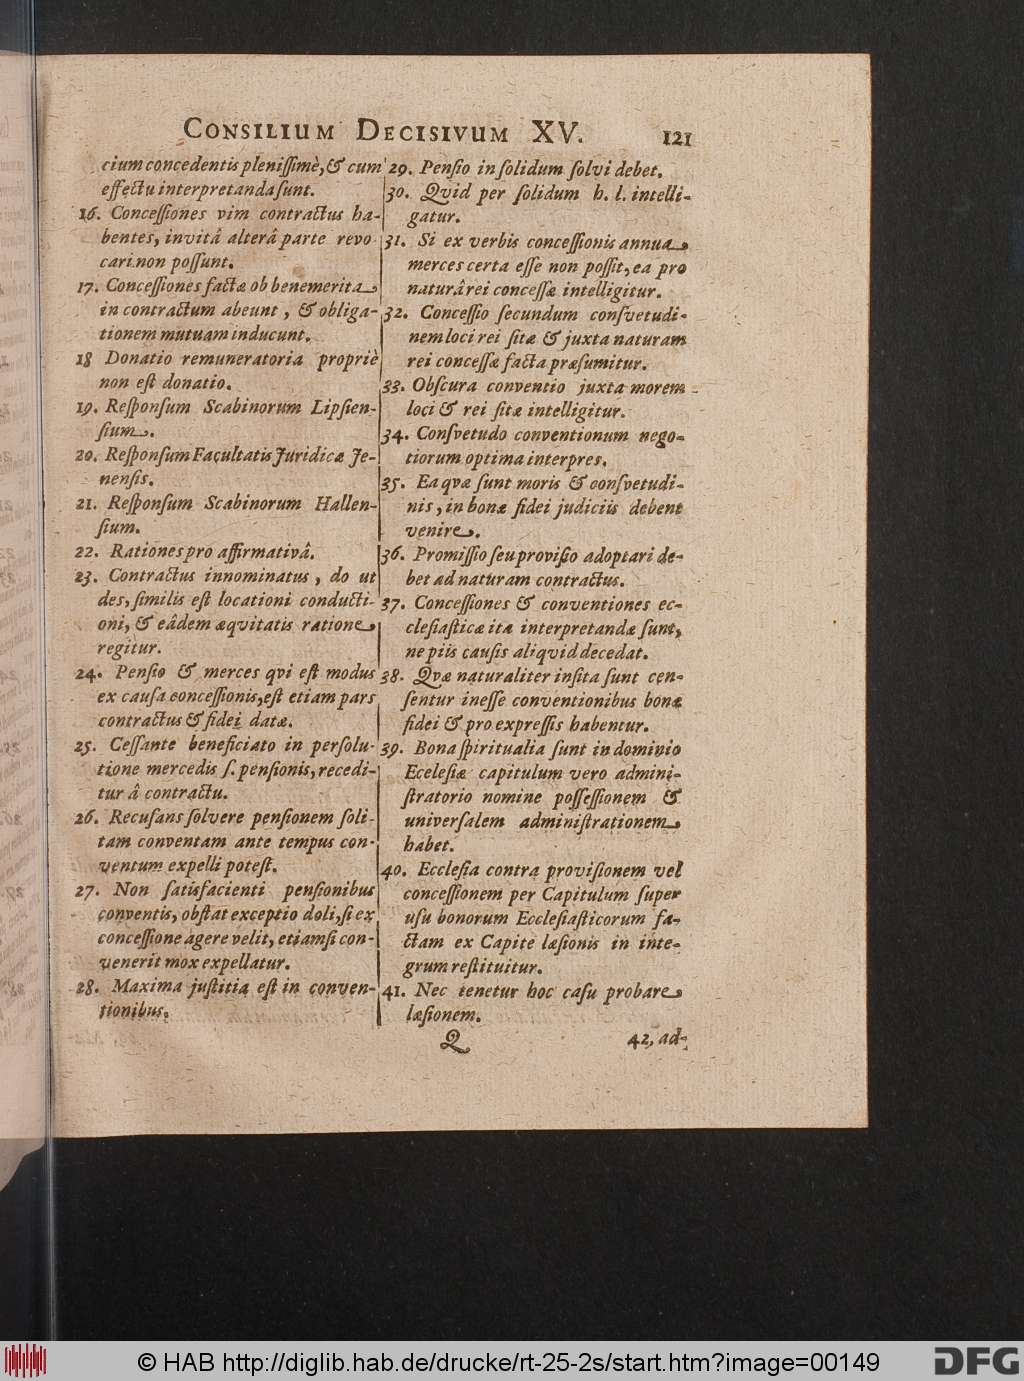 CONSILIUM DECISIVUM XV. 121
cium concedentis plenissimè, & cum
effectu interpretanda sunt.
16. Concessiones vim contractus ha-
bentes, invitâ alterâ parte revo-
cari non possunt.
17. Concessiones factæ ob benemerita
in contractum abeunt, & obliga-
tionem mutuam inducunt.
18 Donatio remuneratoria propriè
non est donatio.
19. Responsum Scabinorum Lipsien-
sium.
20. Responsum Facultatis Juridicæ Je-
nensis.
21. Responsum Scabinorum Hallen-
sium.
22. Rationes pro affirmativâ.
23. Contractus innominatus, do ut
des, similis est locationi conducti-
oni, & eâdem æqvitatis ratione
regitur.
24. Pensio & merces qvi est modus
ex causa concessionis, est etiam pars
contractus & fidei datæ.
25. Cessante beneficiato in persolu-
tione mercedis s. pensionis, recedi-
tur â contractu.
26. Recusans solvere pensionem soli-
tam conventam ante tempus con-
ventum expelli potest.
27. Non satisfacienti pensionibus
conventis, obstat exceptio doli, si ex
concessione agere velit, etiamsi con-
venerit mox expellatur.
28. Maxima justitia est in conven-
tionibus.
29. Pensio in solidum solvi debet.
30. Qvid per solidum h. l. intelli-
gatur.
31. Si ex verbis concessionis annua
merces certa esse non possit, ea pro
naturâ rei concessæ intelligitur.
32. Concessio secundum consvetudi-
nem loci rei sitæ & juxta naturam
rei concessæ facta præsumitur.
33. Obscura conventio juxta morem
loci & rei sitæ intelligitur.
34. Consvetudo conventionum nego-
tiorum optima interpres.
35. Ea qvæ sunt moris & consvetudi-
nis, in bonæ fidei judiciis debent
venire.
36. Promissio seu provisio adoptari de-
bet ad naturam contractus.
37. Concessiones & conventiones ec-
clesiasticæ itâ interpretandæ sunt,
ne piis causis aliqvid decedat.
38. Qvæ naturaliter insita sunt cen-
sentur inesse conventionibus bonæ
fidei & pro expressis habentur.
39. Bona spiritualia sunt in dominio
Ecelesiæ capitulum vero admini-
stratorio nomine possessionem &
universalem administrationem
habet.
40. Ecclesia contra provisionem vel
concessionem per Capitulum super
usu bonorum Ecclesiasticorum fa-
ctam ex Capite læsionis in inte-
grum restituitur.
41. Nec tenetur hoc casu probare
læsionem.
Q 42, ad-
© HAB http://diglib.hab.de/drucke/rt-25-2s/start.htm?image=00149 DFG